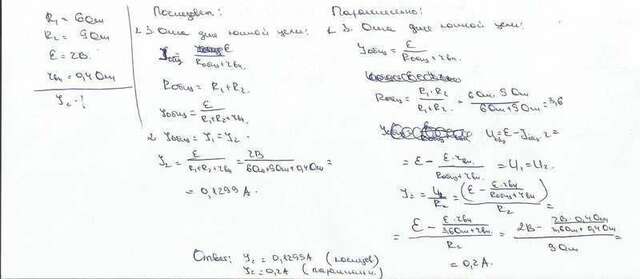 R₁ = 6 Ом
R₂ = 9 Ом
ℰ = 2В
rвн = 0,4 Ом
J₂ - ?
Последоват.:
1. З. Ома для полной цепи:
Jобщ = ℰ / (Rобщ + rвн)
Rобщ = R₁ + R₂
Jобщ = ℰ / (R₁ + R₂ + rвн)
2. Jобщ = J₁ = J₂
J₂ = ℰ / (R₁ + R₂ + rвн) = 2В / (6Ом + 9Ом + 0,4Ом) =
= 0,1299 А.
Параллельно:
1. З. Ома для полной цепи:
Jобщ = ℰ / (Rобщ + rвн)
Rобщ = R₁ · R₂ / (R₁ + R₂) = 6Ом · 9Ом / (6Ом + 9Ом) = 3,6
Uобщ = ℰ - Jобщ · r =
= ℰ - ℰ · rвн / (Rобщ + rвн) = U₁ = U₂
J₂ = U₂ / R₂ = (ℰ - ℰ · rвн / (Rобщ + rвн)) / R₂ =
= (ℰ - ℰ · rвн / (3,6Ом + rвн)) / R₂ = (2В - 2В · 0,4Ом / (3,6Ом + 0,4Ом)) / 9Ом =
= 0,2А.
Ответ: J₂ = 0,1299А (последов)
J₂ = 0,2А (параллельн.)